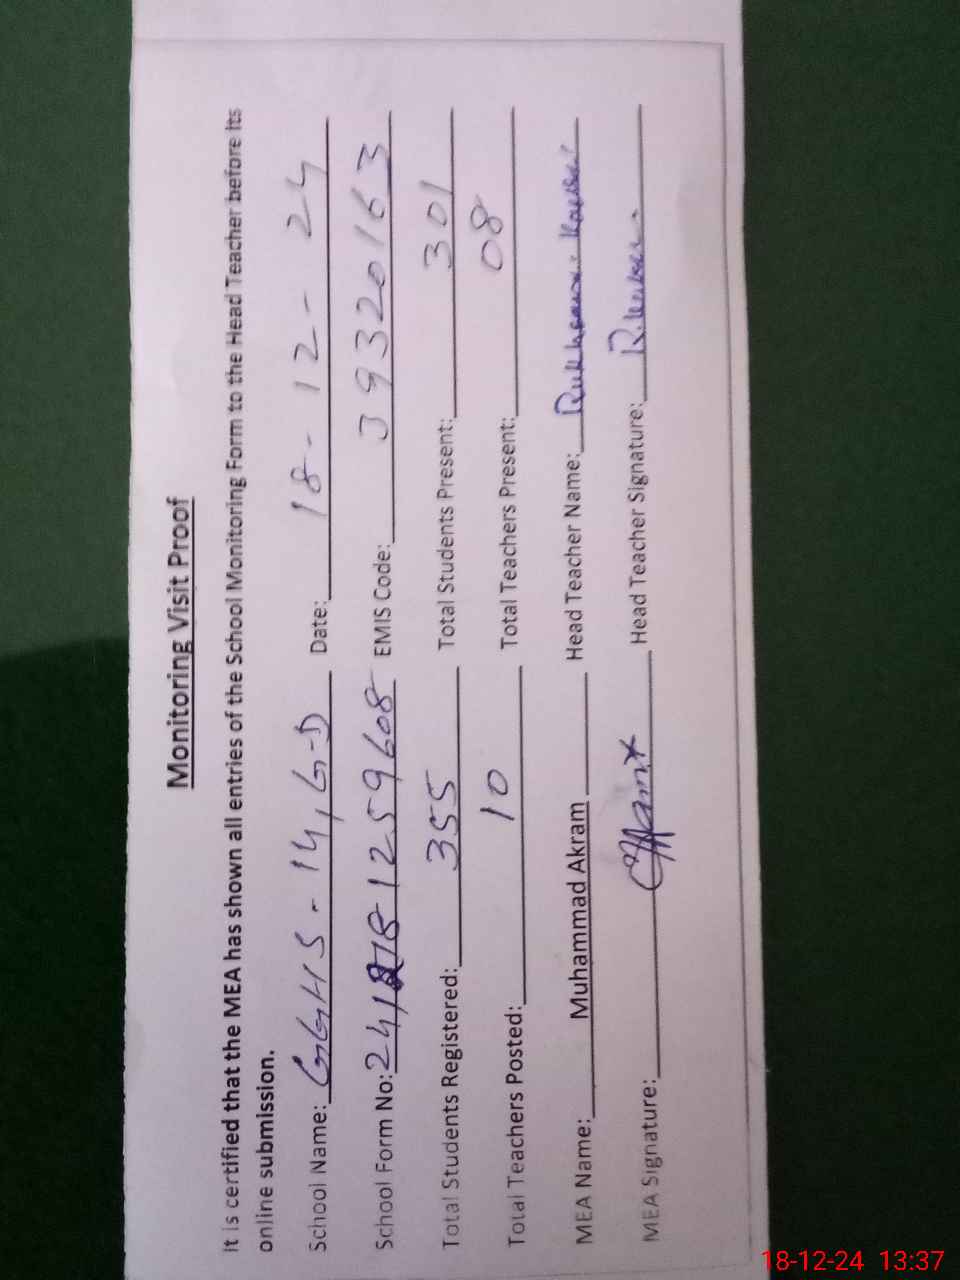 Monitoring Visit Proof
It is certified that the MEA has shown all entries of the School Monitoring Form to the Head Teacher before its
online submission.
School Name: GGHS-14, G-D Date: 18-12-24
School Form No: 1259608 EMIS Code: 39320163
Total Students Registered: 355 Total Students Present: 301
Total Teachers Posted: 10 Total Teachers Present: 08
MEA Name: Muhammad Akram Head Teacher Name: Rukhsana Kausar
MEA Signature: Head Teacher Signature:
18-12-24 13:37